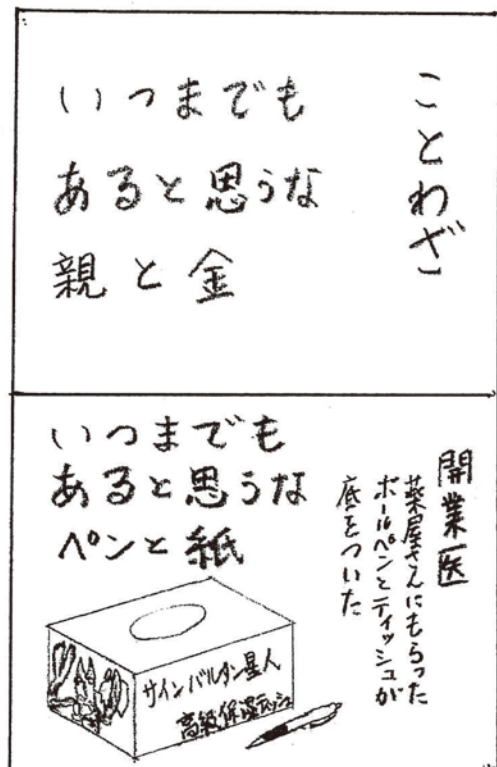 ことわざ
いつまでも
あると思うな
親と金
開業医
薬屋さんにもらった
ボールペンとティッシュが
底をついた
いつまでも
あると思うな
ペンと紙
サインバルタン星人
高級保湿ティッシュ